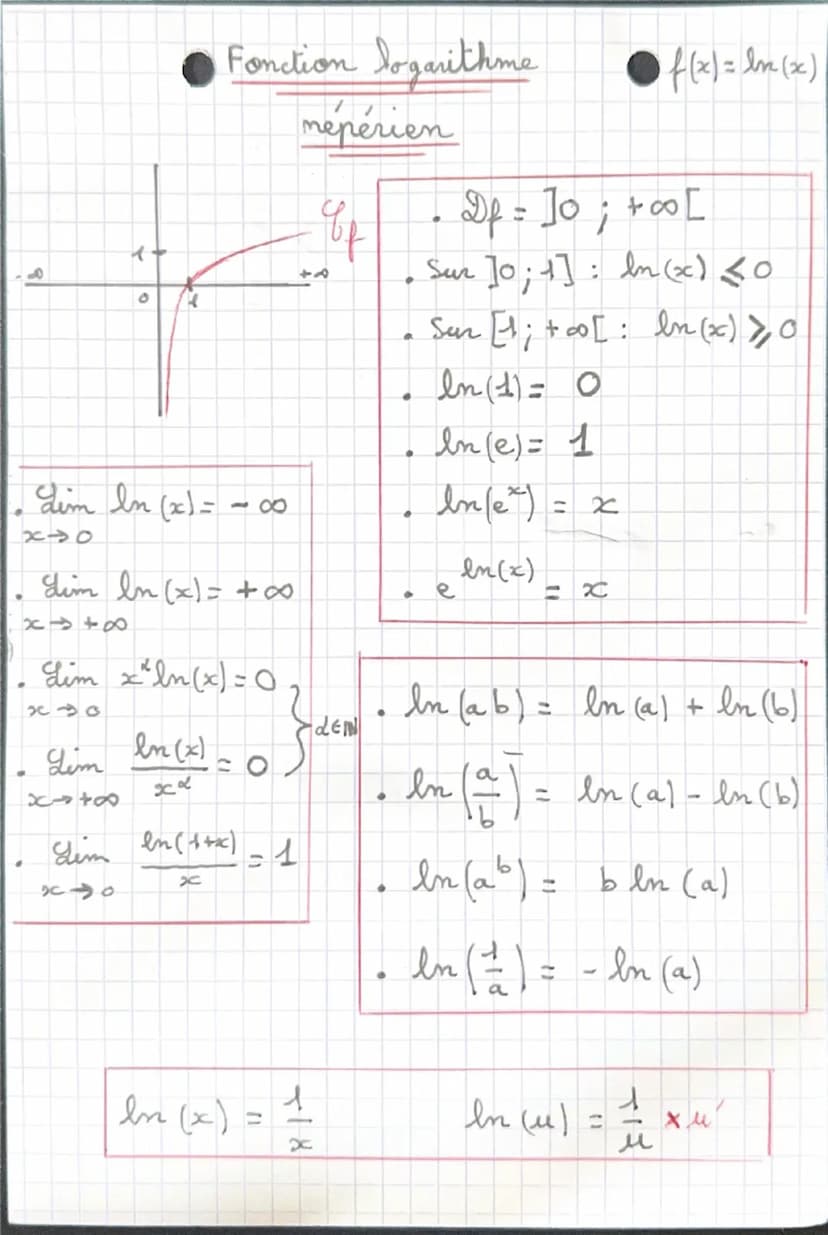 Fonction logarithme
népérien
f(x) = ln(x)
𝒞f
1
-∞ +∞
0 1
. Df = ]0 ; +∞[
. Sur ]0 ; 1] : ln(x) ⩽ 0
. Sur [1 ; +∞[ : ln(x) ⩾ 0
. ln(1) = 0
. ln(e) = 1
. ln(e^x) = x
. e^ln(x) = x
. Lim ln(x) = -∞
x→0
. Lim ln(x) = +∞
x→+∞
. Lim x^α ln(x) = 0
x→0
. Lim ln(x)/x^α = 0
x→+∞
} α∈ℕ
. Lim ln(1+x)/x = 1
x→0
. ln(ab) = ln(a) + ln(b)
. ln(a/b) = ln(a) - ln(b)
. ln(a^b) = b ln(a)
. ln(1/a) = - ln(a)
ln(x) = 1/x
ln(u) = 1/u × u'